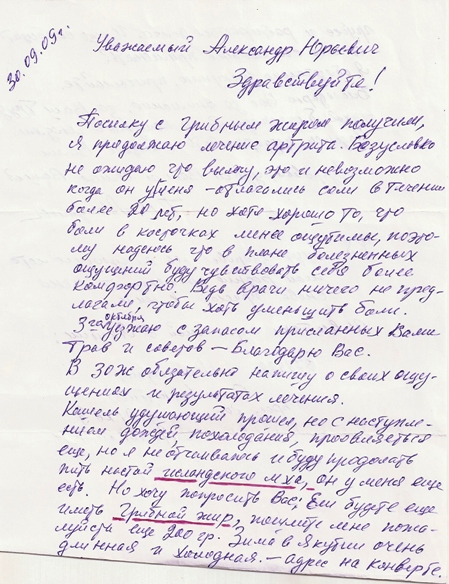 30.09.09г.
Уважаемый Александр Юрьевич
Здравствуйте!
Посылку с грибным жиром получили,
Я продолжаю лечение артрита. Безусловно
не ожидаю что вылечу, это и невозможно
когда он у меня – отлагались соли в течении
более 20 лет, но хотя хорошо то, что
боли в косточках менее ощутимы, поэто-
му надеюсь что в плане болезненных
ощущений буду чувствовать себя более
комфортно. Ведь врачи ничего не пред-
лагали, чтобы хоть уменьшить боли.
3го октября уезжаю с запасом присланных Вами
трав и советов – Благодарю Вас.
В ЗОЖ обязательно напишу о своих ощу-
щениях и результатах лечения.
Кашель удушающий прошел, но с наступле-
нием дождей похолодания, проявляется
еще, но я не отчаиваюсь и буду продолжать
пить настой исландского мха, – он у меня еще
есть. Но хочу попросить Вас; Если будете еще
иметь Грибной жир, пошлите мне пожа-
луйста еще 200 гр. Зима в Якутии очень
длинная и холодная. – адрес на конверте.